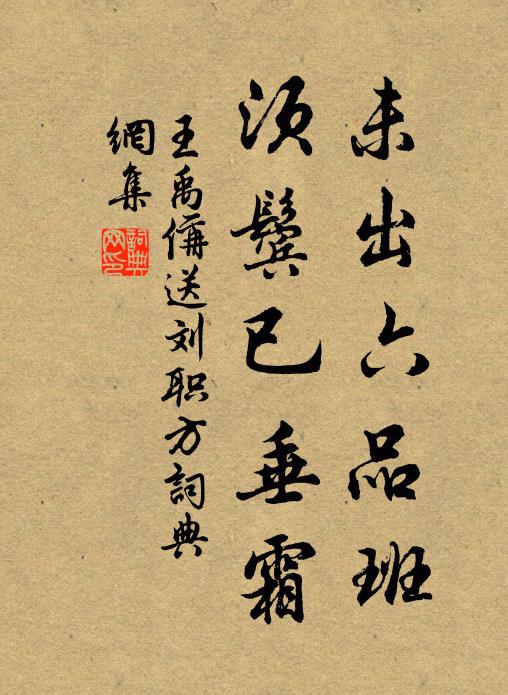 未出六品班
须鬓已垂霜
王禹偁送刘职方詞典
網集
詞典
网印